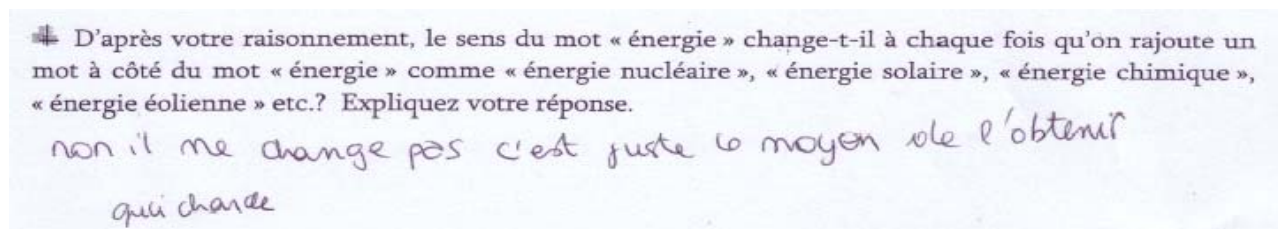 D'après votre raisonnement, le sens du mot « énergie » change-t-il à chaque fois qu'on rajoute un
mot à côté du mot « énergie » comme « énergie nucléaire », « énergie solaire », « énergie chimique »,
« énergie éolienne » etc.? Expliquez votre réponse.
non il ne change pas c'est juste le moyen de l'obtenir
qui change